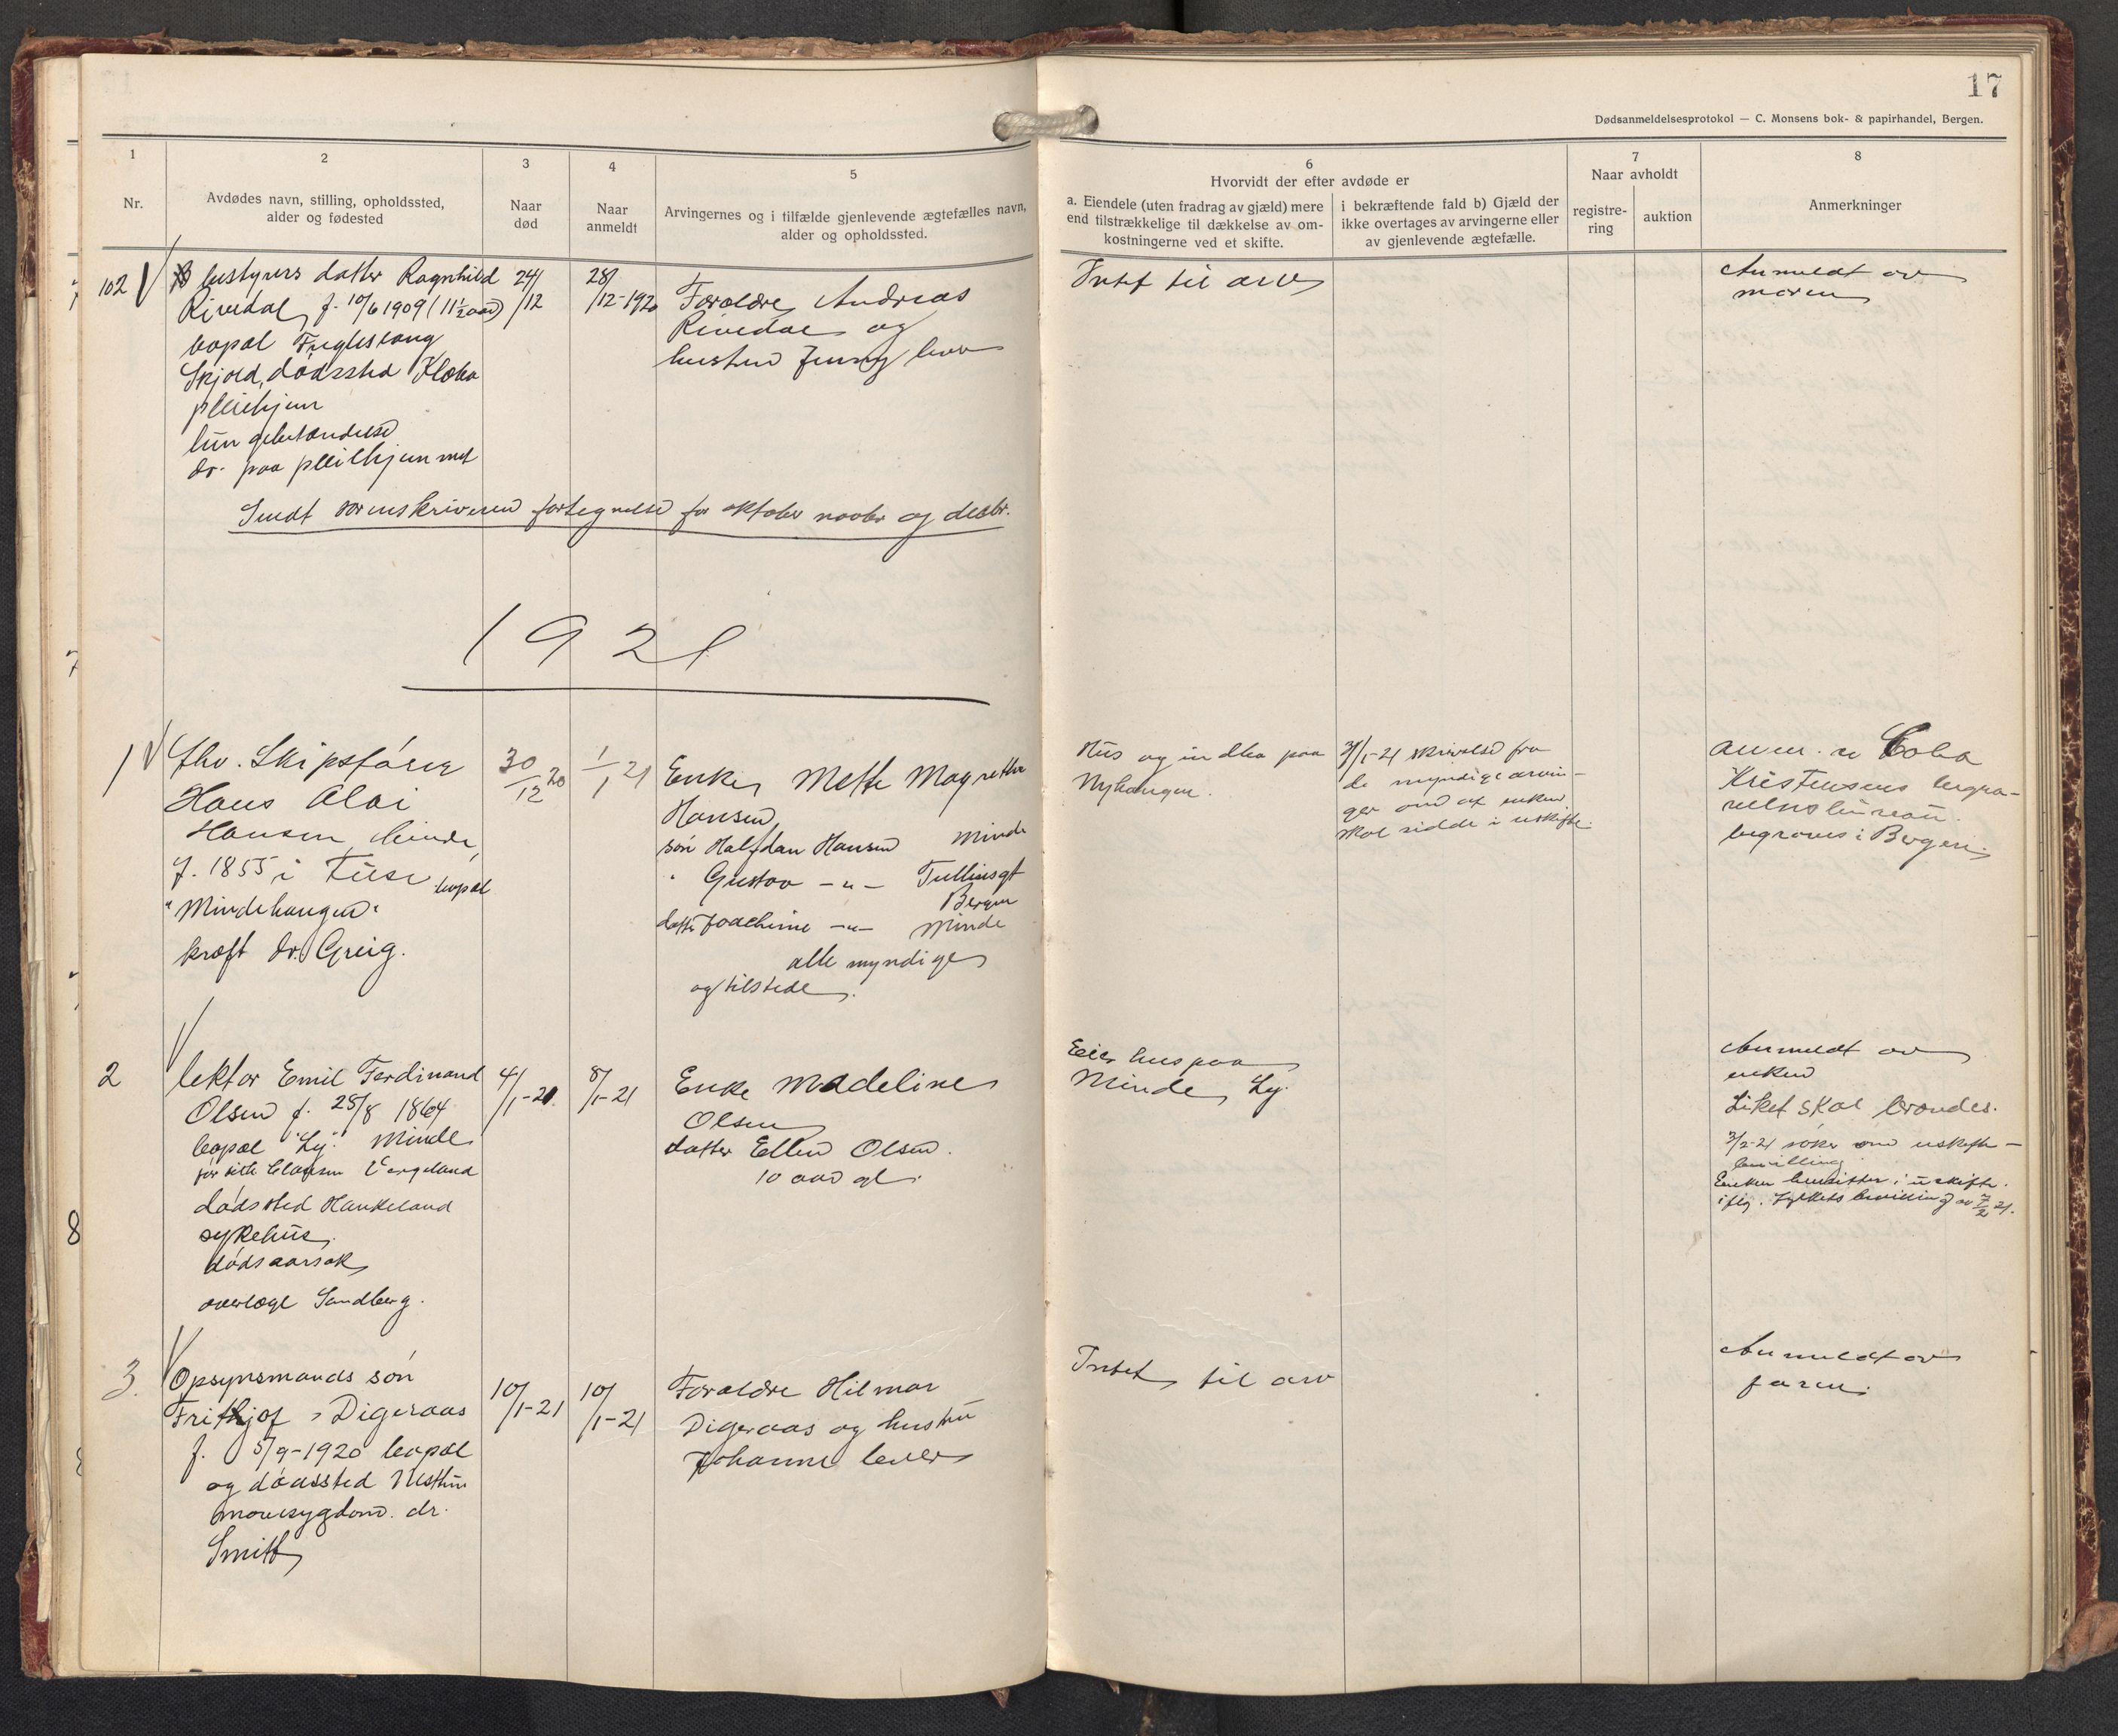 17
Dødsanmeldelsesprotokol — C. Monsens bok- & papirhandel, Bergen.
1
2
3
4
5
6
7
8
Nr.
Avdødes navn, stilling, opholdssted,
alder og fødested
Naar
død
Naar
anmeldt
Arvingernes og i tilfælde gjenlevende ægtefælles navn,
alder og opholdssted.
Hvorvidt der efter avdøde er
a. Eiendele (uten fradrag av gjæld) mere
end tilstrækkelige til dækkelse av om-
kostningerne ved et skifte.
i bekræftende fald b) Gjæld der
ikke overtages av arvingerne eller
av gjenlevende ægtefælle.
Naar avholdt
registre-
ring
auktion
Anmerkninger
102
bestyrers datter Ragnhild
Rivedal, f. 10/6 1909 (11½ aar)
bopæl Fuglesang
Skjold, dødssted
pleiehjem
lungebetændelse
dr. paa pleiehjemmet
24/12
28/12-1920
Forældre Andreas
Rivedal og
hustru lever
Intet til arv
Anmeldt av
moren
Sendt sorenskriveren fortegnelse for oktober novbr og desbr.
1921
1
fhv. Skipsfører
Hans
Hansen, Minde,
f. 1855 i Fuse bopæl
"Mindehaugen"
kræft dr. Greig.
30/12 20
1/1 21
Enke Mette Magrethe
Hansen
søn Halfdan Hansen Minde
" Gustav -"- Tullinsgt
Bergen
datter Joachime -"- Minde
alle myndige
og tilstede.
Hus og indbo paa
Nyhaugen.
31/1-21 skrivelse fra
de myndige arvin-
ger om at enken
skal sidde i uskifte.
anm. av
Kristensens begra-
velsesbureau.
begraves i Bergen.
2
lektor Emil Ferdinand
Olsen f. 25/8 1864
bopæl "Ly" Minde
før
dødssted Haukeland
sykehus,
dødsaarsak
overlæge Sandberg.
4/1-21
8/1-21
Enke Madeline
Olsen
datter Ellen Olsen.
10 aar gl.
Eier hus paa
Minde, Ly.
Anmeldt av
enken
Liket skal brændes.
3/2-21 søker om uskifte-
bevilling
Enken hensitter i uskifte.
iflg. Fylkets bevilling av 7/2 21.
3.
Opsynsmands søn
Frithjof Digeraas
f. 5/9-1920 bopæl
og dødssted Nesttun
mavesygdom. dr.
Smith
10/1-21
10/1-21
Forældre Hilmar
Digeraas og hustru
Johanne lever
Intet til arv
Anmeldt av
faren.